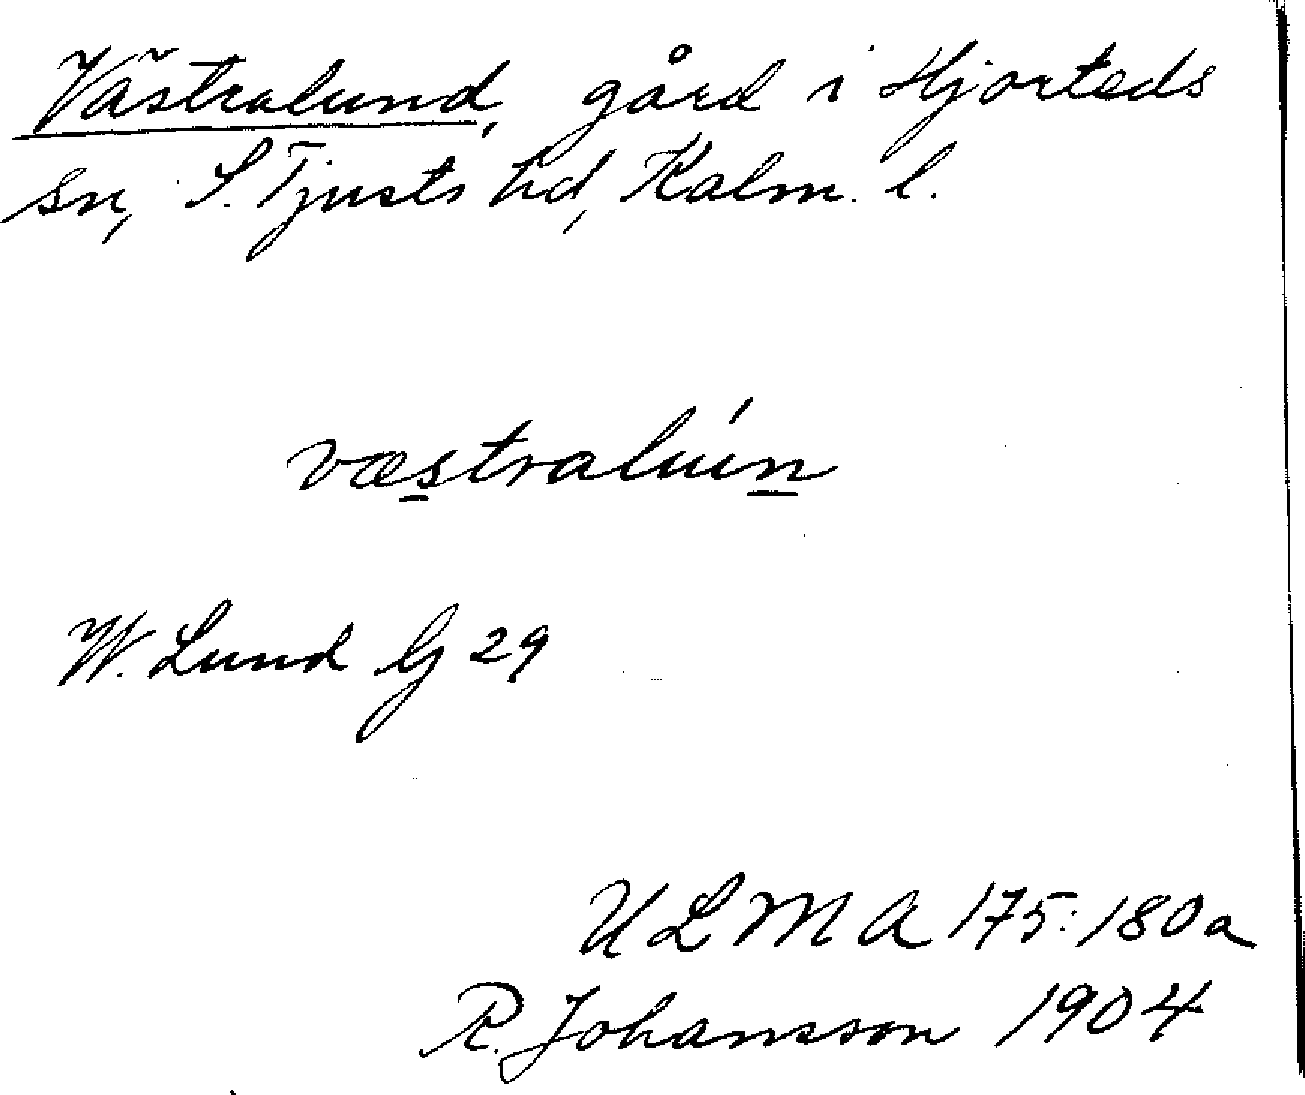 Västralund, gård i Hjorteds
sn, S. Tjusts hd, Kalm. l.
væstralún
W. Lund Gj 29
ULMA 175:180a
R. Johansson 1904